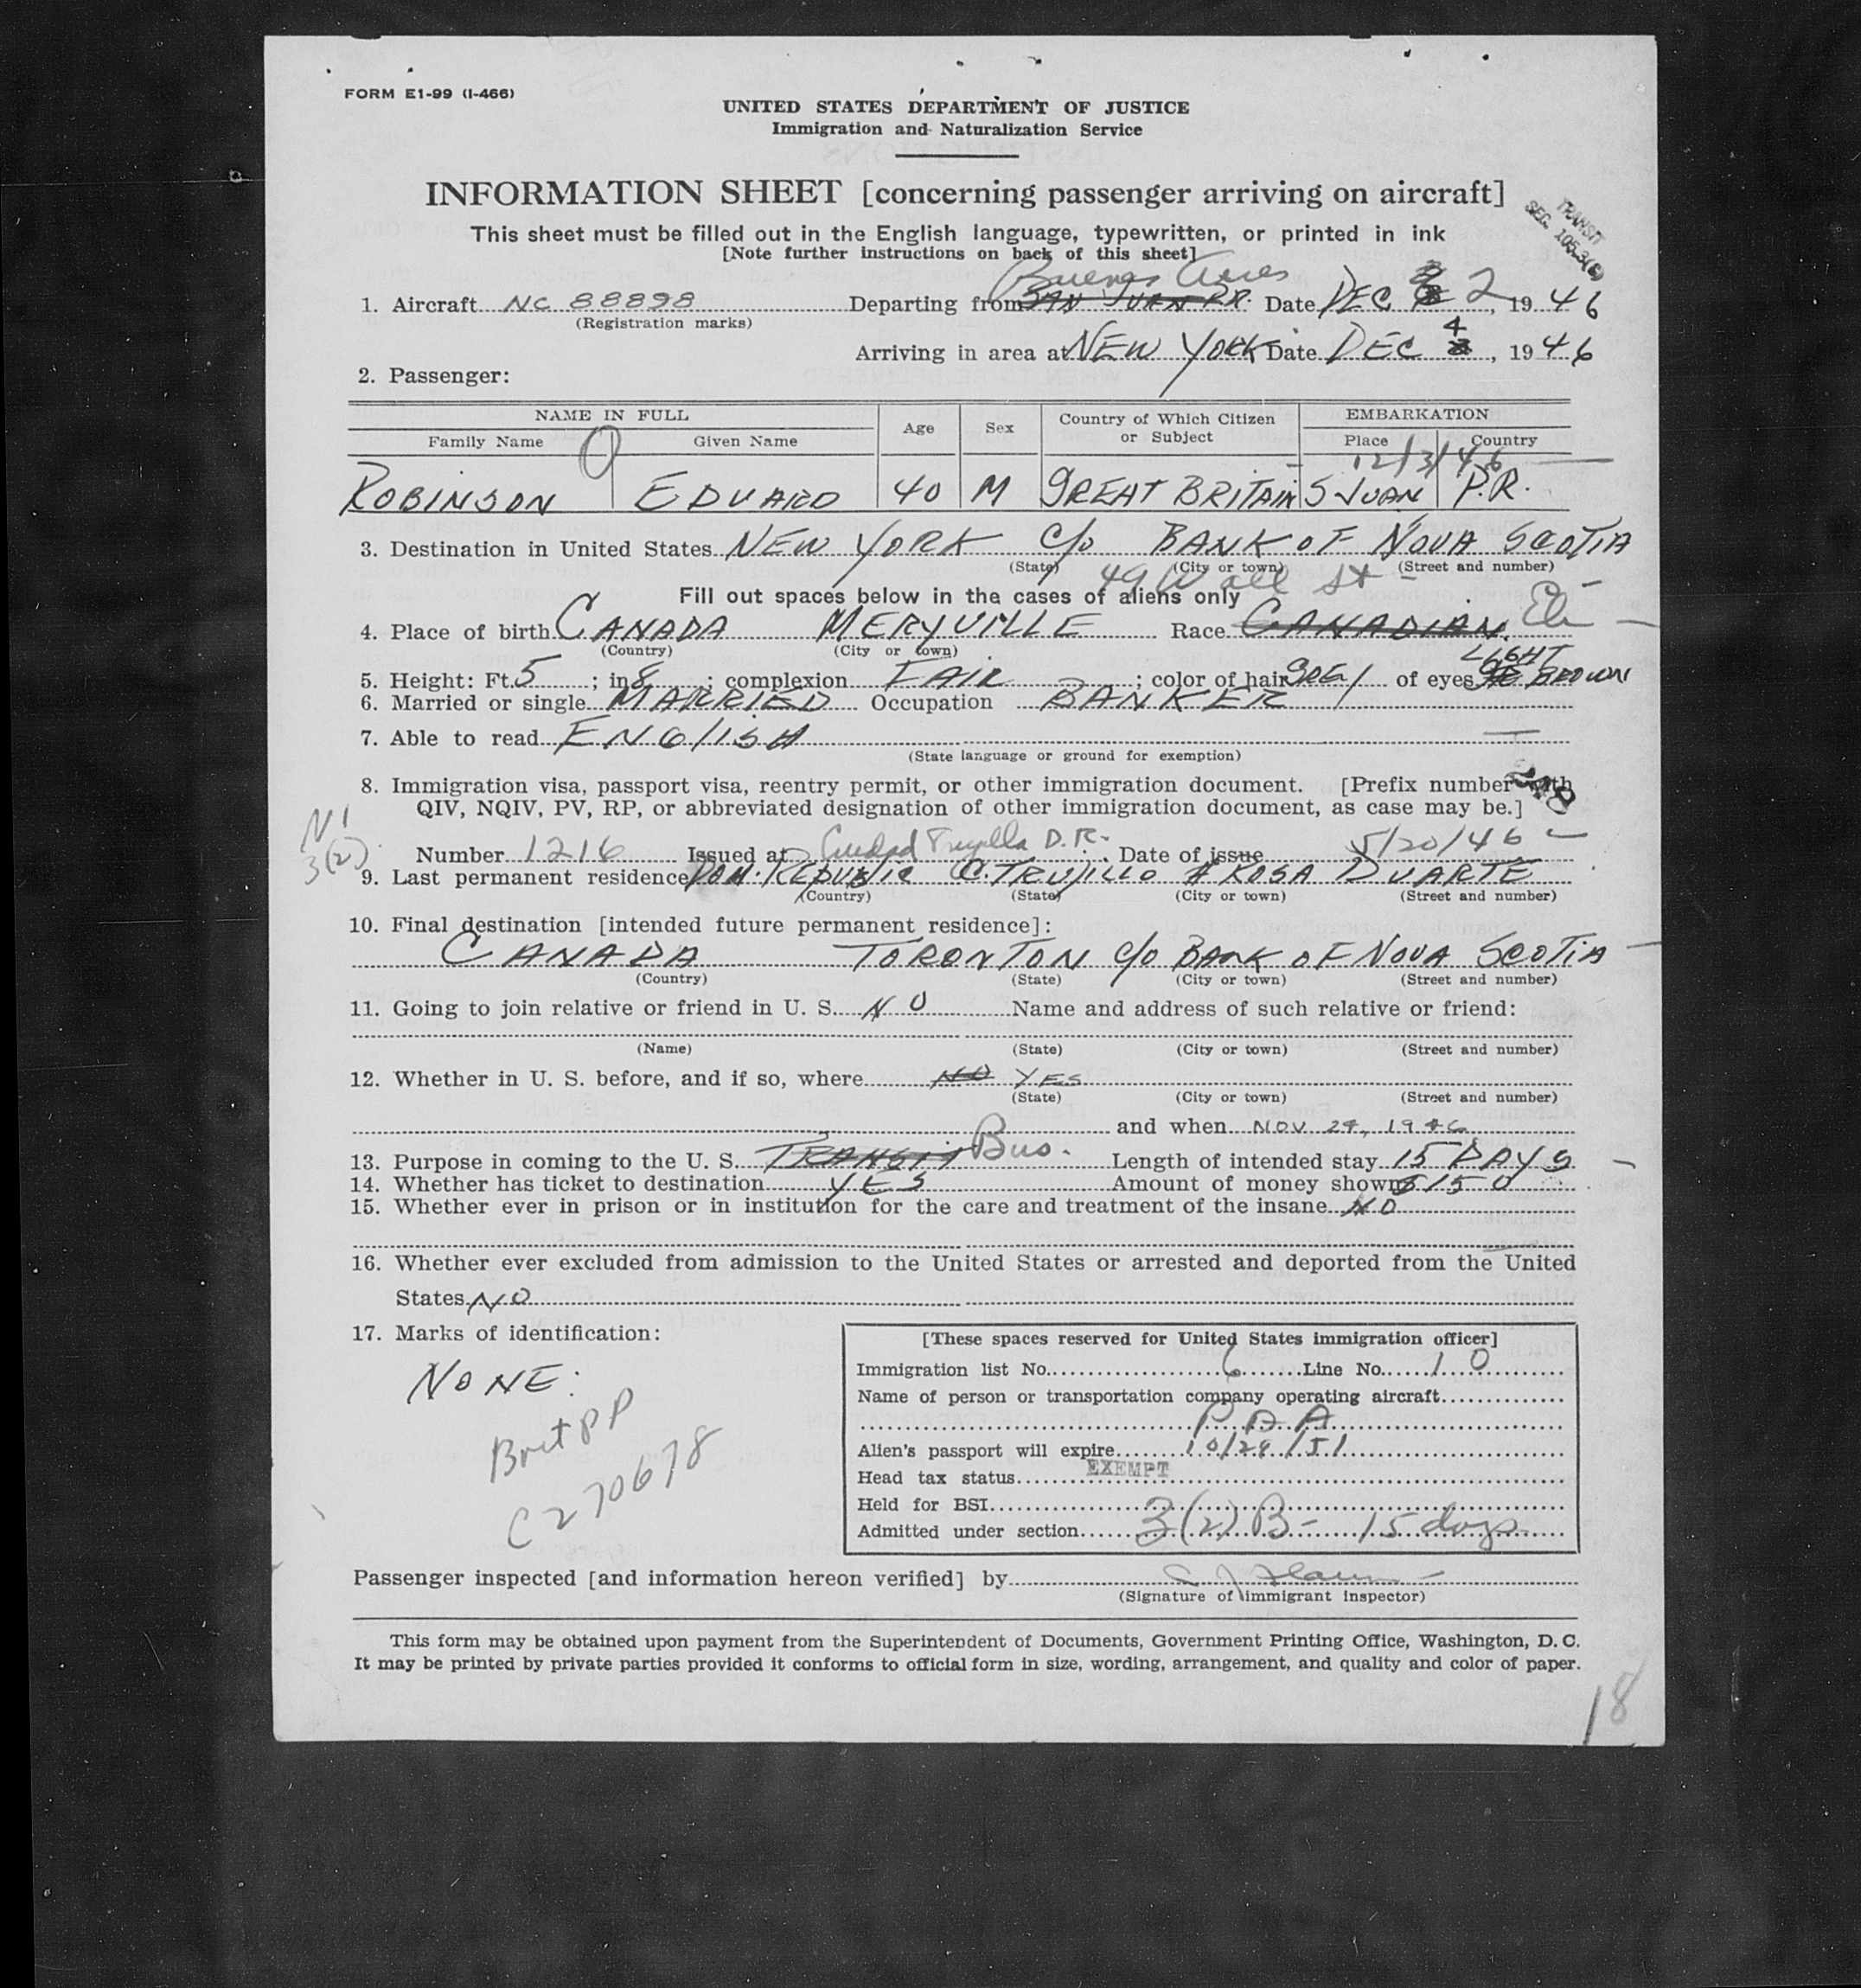 FORM E1-99 (I-466)
UNITED STATES DEPARTMENT OF JUSTICE
Immigration and Naturalization Service
INFORMATION SHEET [concerning passenger arriving on aircraft]
TRANSIT
SEC. 105.3(6)
This sheet must be filled out in the English language, typewritten, or printed in ink
[Note further instructions on back of this sheet]
Buenos Aires
1. Aircraft NC 88898 Departing from SAN JUAN P.R. Date DEC 2, 1946
(Registration marks)
Arriving in area at NEW YORK Date DEC 4, 1946
2. Passenger:
NAME IN FULL Age Sex Country of Which Citizen or Subject EMBARKATION
Family Name Given Name Place Country
12/3/46
ROBINSON EDUARD 40 M GREAT BRITAIN S JUAN P.R.
3. Destination in United States NEW YORK c/o BANK OF NOVA SCOTIA
(State) (City or town) (Street and number)
49 Wall St
Fill out spaces below in the cases of aliens only
4. Place of birth CANADA MERYVILLE Race CANADIAN
(Country) (City or town)
LIGHT
5. Height: Ft. 5; in 8; complexion FAIR; color of hair GREY of eyes BROWN
6. Married or single MARRIED Occupation BANKER
7. Able to read ENGLISH
(State language or ground for exemption)
8. Immigration visa, passport visa, reentry permit, or other immigration document. [Prefix number with
QIV, NQIV, PV, RP, or abbreviated designation of other immigration document, as case may be.]
3(2)
Number 1216 Issued at Ciudad Trujillo D.R. Date of issue 5/20/46
9. Last permanent residence DOM. REPUBLIC C. TRUJILLO # ROSA DUARTE
(Country) (State) (City or town) (Street and number)
10. Final destination [intended future permanent residence]:
CANADA TORONTON c/o BANK OF NOVA SCOTIA
(Country) (State) (City or town) (Street and number)
11. Going to join relative or friend in U. S. NO Name and address of such relative or friend:
(Name) (State) (City or town) (Street and number)
12. Whether in U. S. before, and if so, where NO YES
(State) (City or town) (Street and number)
and when NOV 24, 1946
13. Purpose in coming to the U. S. TRANSIT Bus. Length of intended stay 15 DAYS
14. Whether has ticket to destination YES Amount of money shown $150
15. Whether ever in prison or in institution for the care and treatment of the insane NO
16. Whether ever excluded from admission to the United States or arrested and deported from the United
States NO
17. Marks of identification:
NONE:
Brit PP
C270678
[These spaces reserved for United States immigration officer]
Immigration list No. 6 Line No. 10
Name of person or transportation company operating aircraft
P A A
Alien's passport will expire 10/29/51
Head tax status EXEMPT
Held for BSI
Admitted under section 3(2) B - 15 days
Passenger inspected [and information hereon verified] by
(Signature of immigrant inspector)
This form may be obtained upon payment from the Superintendent of Documents, Government Printing Office, Washington, D. C.
It may be printed by private parties provided it conforms to official form in size, wording, arrangement, and quality and color of paper.
18